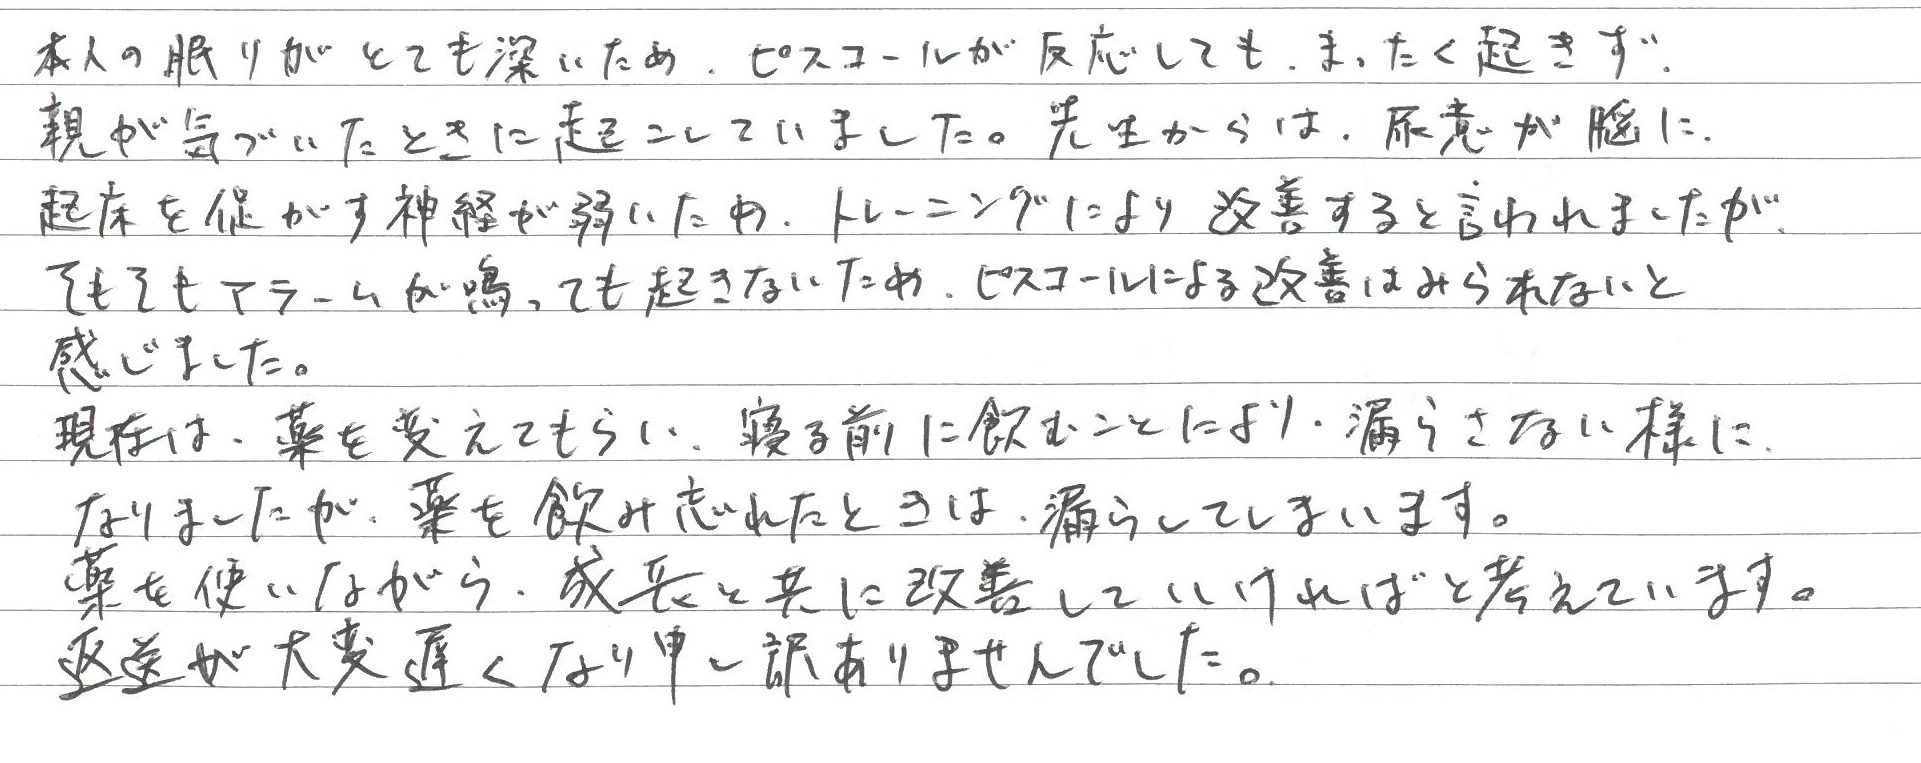 本人の眠りがとても深いため、ピスコールが反応しても、まったく起きず、
親が気づいたときに起こしていました。先生からは、尿意が脳に、
起床を促がす神経が弱いため、トレーニングにより改善すると言われましたが、
そもそもアラームが鳴っても起きないため、ピスコールによる改善はみられないと
感じました。
現在は、薬を変えてもらい、寝る前に飲むことにより、漏らさない様に、
なりましたが、薬を飲み忘れたときは、漏らしてしまいます。
薬を使いながら、成長と共に改善していいければと考えています。
返送が大変遅くなり申し訳ありませんでした。